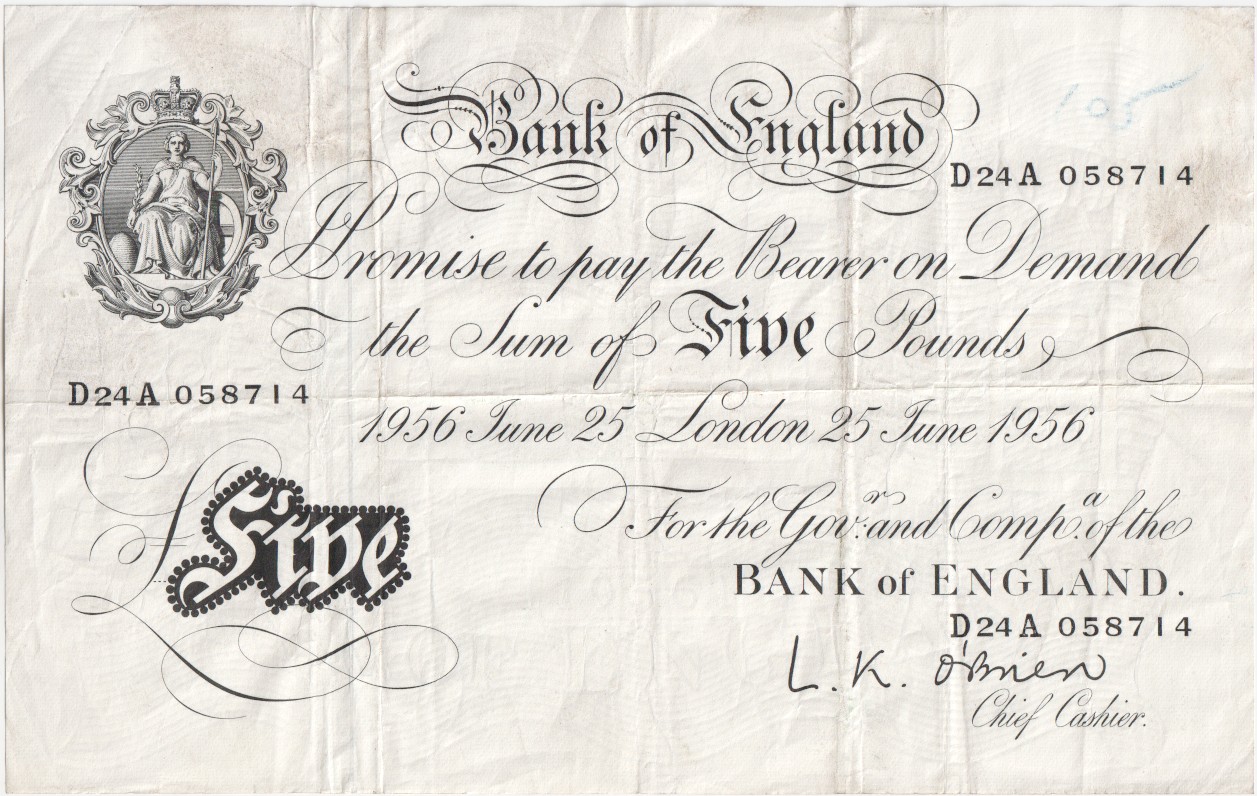 105
Bank of England
D24A 058714
I Promise to pay the Bearer on Demand
the Sum of Five Pounds
D24A 058714
1956 June 25 London 25 June 1956
£Five
For the Gov.r and Comp.a of the
BANK of ENGLAND.
D24A 058714
L. K. O'Brien
Chief Cashier.